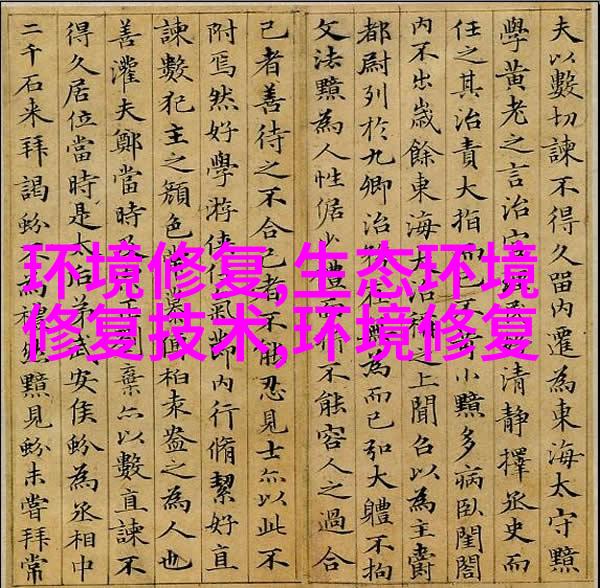 环境修复,生态环境
修复技术,环境修复
夫以數切諫不得久留內遷為東海太守黯
學黃老之言治官好清靜擇丞史而
任之其治責大指而已不苛小黯多病臥閨閤
內不出歲餘東海大治稱之上聞召以為主爵
都尉列於九卿治務在無為而已弘大體不拘
文法黯為人性倨少禮不能容人之過合
己者善待之不合己者不能忍見士亦以此不
附焉然好學游俠任氣節內行脩絜好直
諫數犯主之顏色常慕柏袁盎之為人也
善灌夫鄭當時及正劉棄亦以數直諫不
得久居位當時是太后弟武安侯蚡為丞相中
二千石来拜謁蚡不為禮黯見蚡未嘗拜常